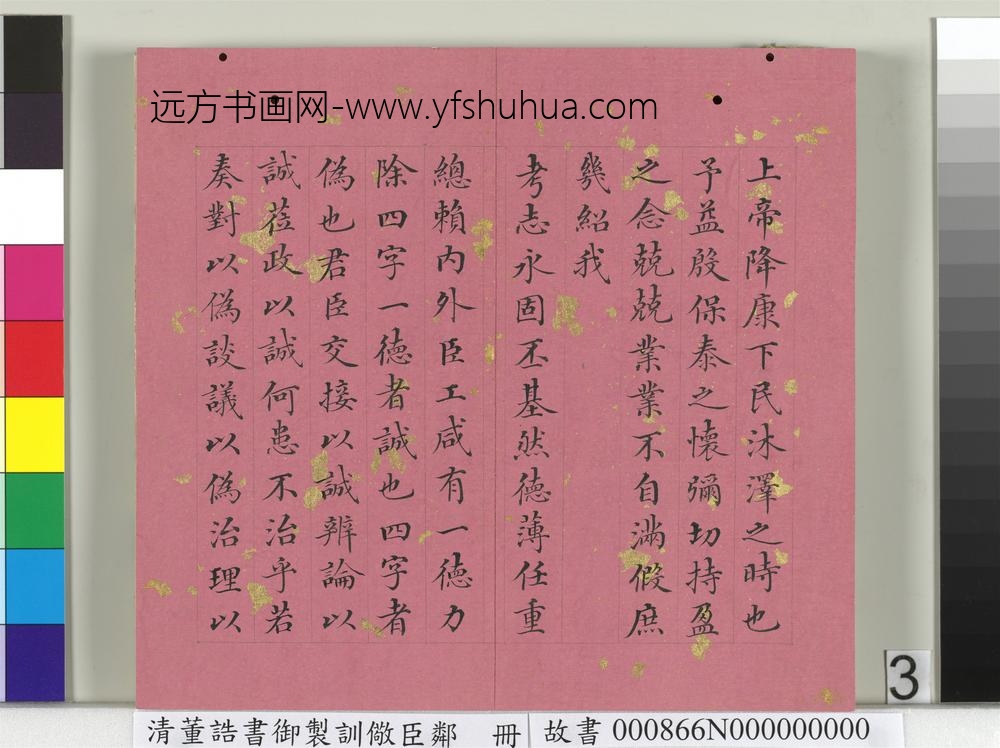 远方书画网-www.yfshuhua.com
上帝降康下民沐澤之時也
予益殷保泰之懷彌切持盈
之念兢兢業業不自滿假庶
幾紹我
考志永固丕基然德薄任重
總賴内外臣工咸有一德力
除四字一德者誠也四字者
偽也君臣交接以誠辨論以
誠莅政以誠何患不治乎若
奏對以偽談議以偽治理以
3
清董誥書御製訓儆臣鄰 冊 故書 000866N000000000